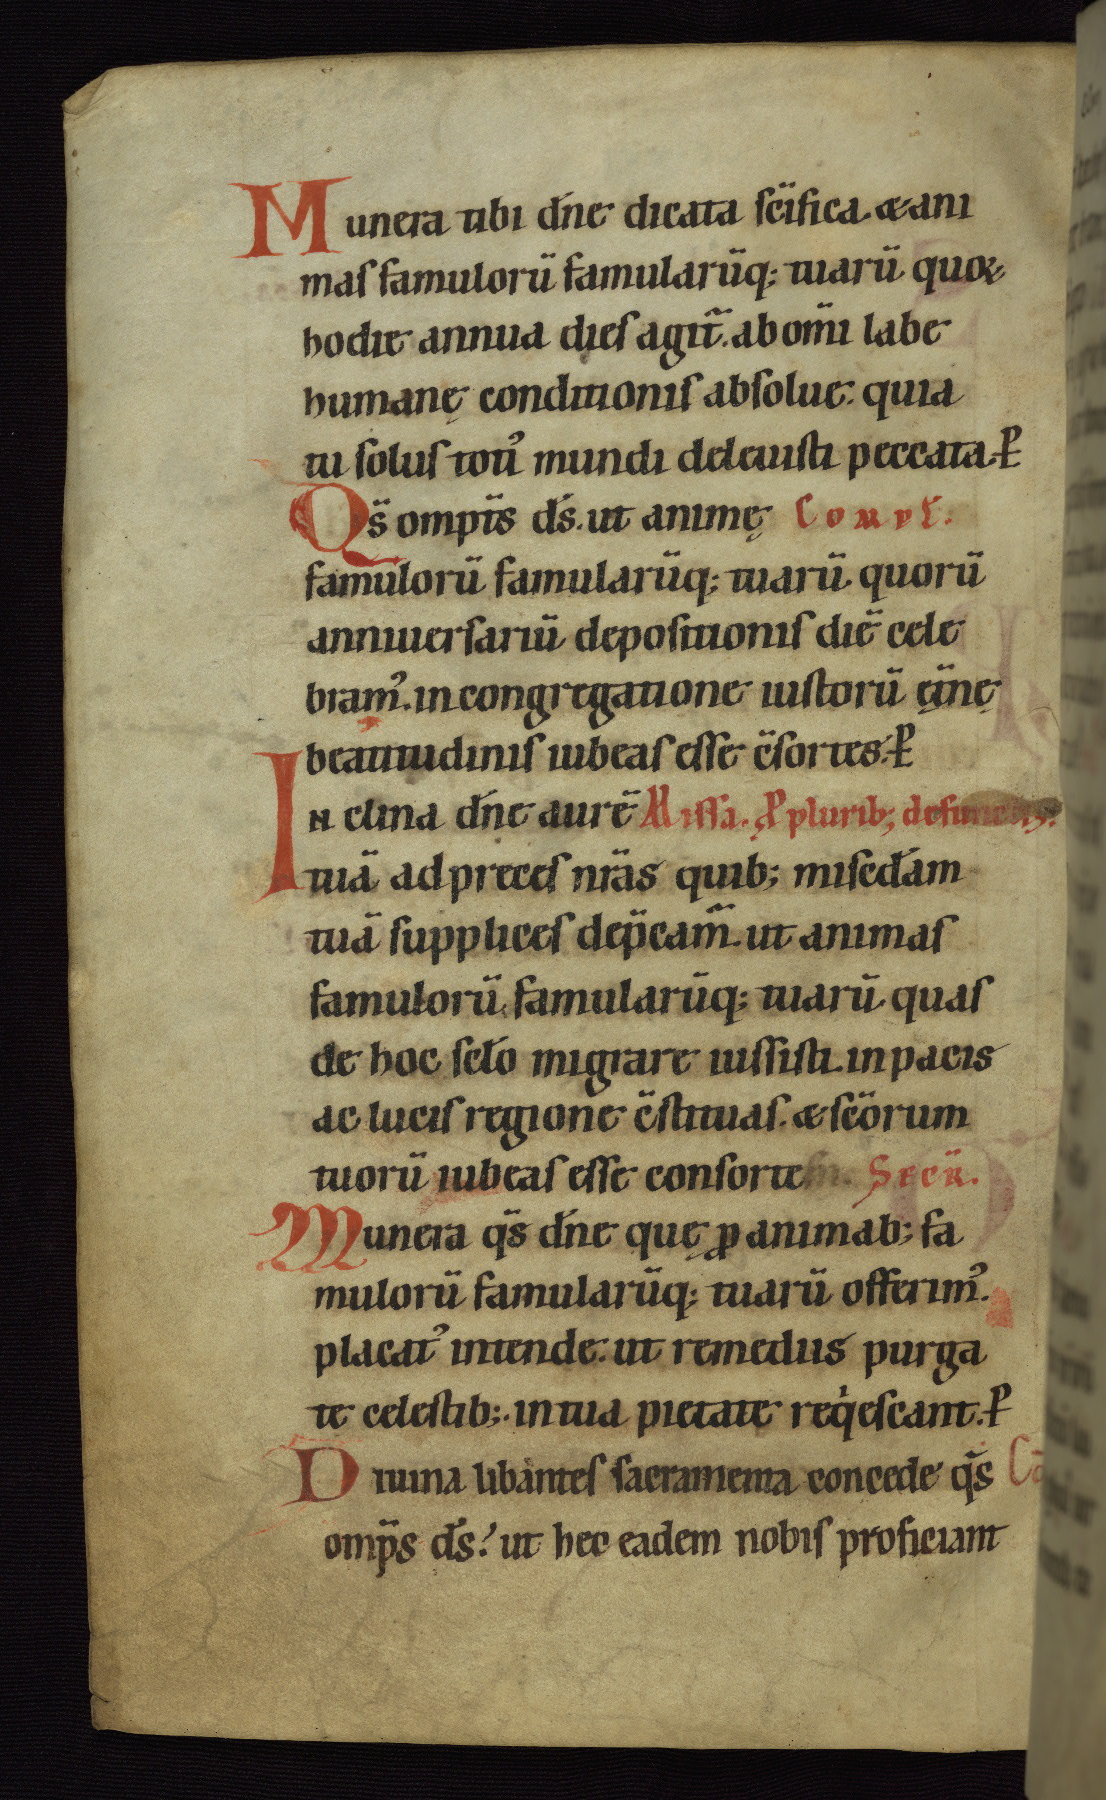 Munera tibi dn̄e dicata sc̄ifica. & ani
mas famulorū famularūq; tuarū quoꝝ
hodie annua dies agit̄. ab om̄i labe
humanę conditionis absolue. quia
tu solus toti᾿ mundi deleuisti peccata. P̄
Qs̄ omp̄ts d̄s. ut animę Compl̄.
famulorū famularūq; tuarū. quorū
anniuersariū depositionis diē cele
bram᾿. in congregatione iustorū ęt̄nę
beatitudinis iubeas esse c̄sortes. P̄
Inclina dn̄e aurē Missa. P̄ plurib; defunctis.
tuā ad preces nr̄as quib; mis̄cdam
tuā supplices dep̄cam̄. ut animas
famulorū famularūq; tuarū. quas
de hoc sc̄lo migrare iussisti. in pacis
ac lucis regione c̄stituas. & sc̄orum
tuorū iubeas esse consortem. Secr̄.
Munera qs̄ dn̄e quę ꝓ animab; fa
mulorū famularūq; tuarū offerim᾿.
placat᾿ intende. ut remediis purga
te celestib;. in tua pietate reqͥescant. P̄
Diuina libantes sacramenta concede qs̄ Cō
omp̄s d̄s. ut hec eadem nobis proficiant